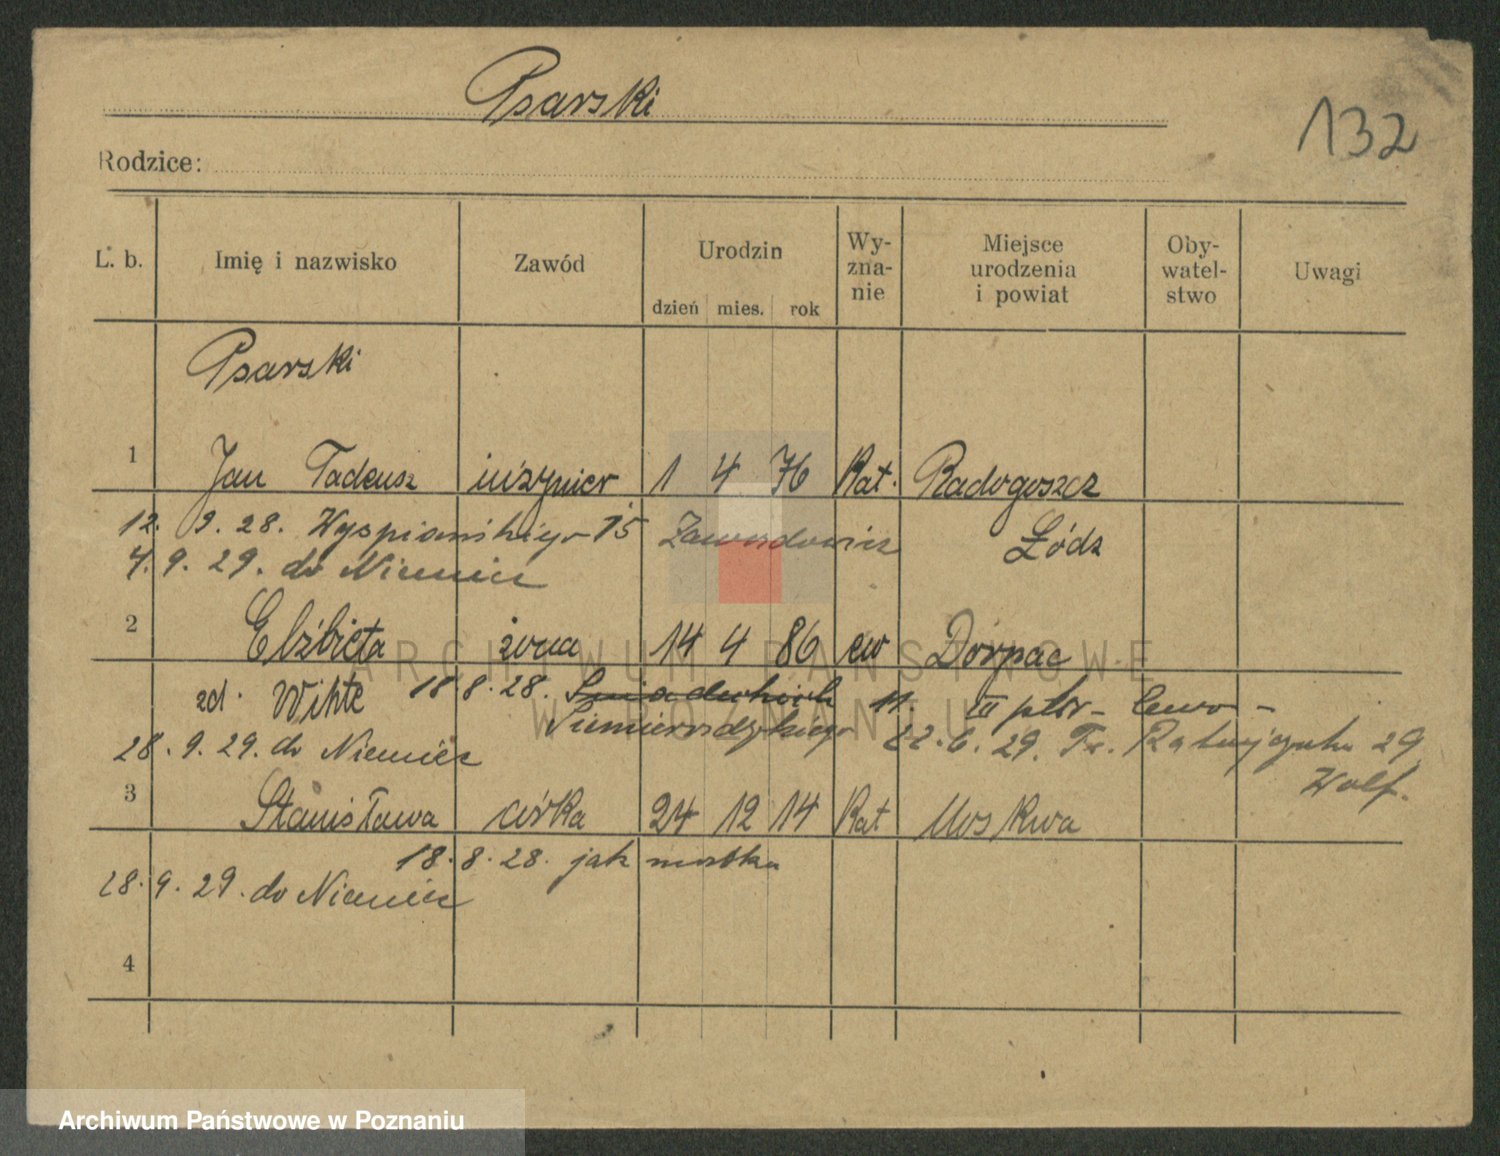 Psarski
132
Rodzice:
L. b. Imię i nazwisko Zawód Urodzin dzień mies. rok Wy-zna-nie Miejsce urodzenia i powiat Oby-watel-stwo Uwagi
Psarski
1 Jan Tadeusz inżynier 1 4 76 Kat. Radogoszcz
12. 9. 28. Wyspiańskiego 15 Łódz
4. 9. 29. do Niemiec
2 Elżbieta żona 14 4 86 ew Dorpac
zd. Wihte 18. 8. 28. Śniadeckich 11. III ptr- lewo-
28. 9. 29. do Niemiec 22. 6. 29. Fr. Ratajczaka 29
Wolf.
3 Stanisława córka 24 12 14 Kat Moskwa
18. 8. 28. jak matka
28. 9. 29. do Niemiec
4
ARCHIWUM PAŃSTWOWE
W POZNANIU
Archiwum Państwowe w Poznaniu